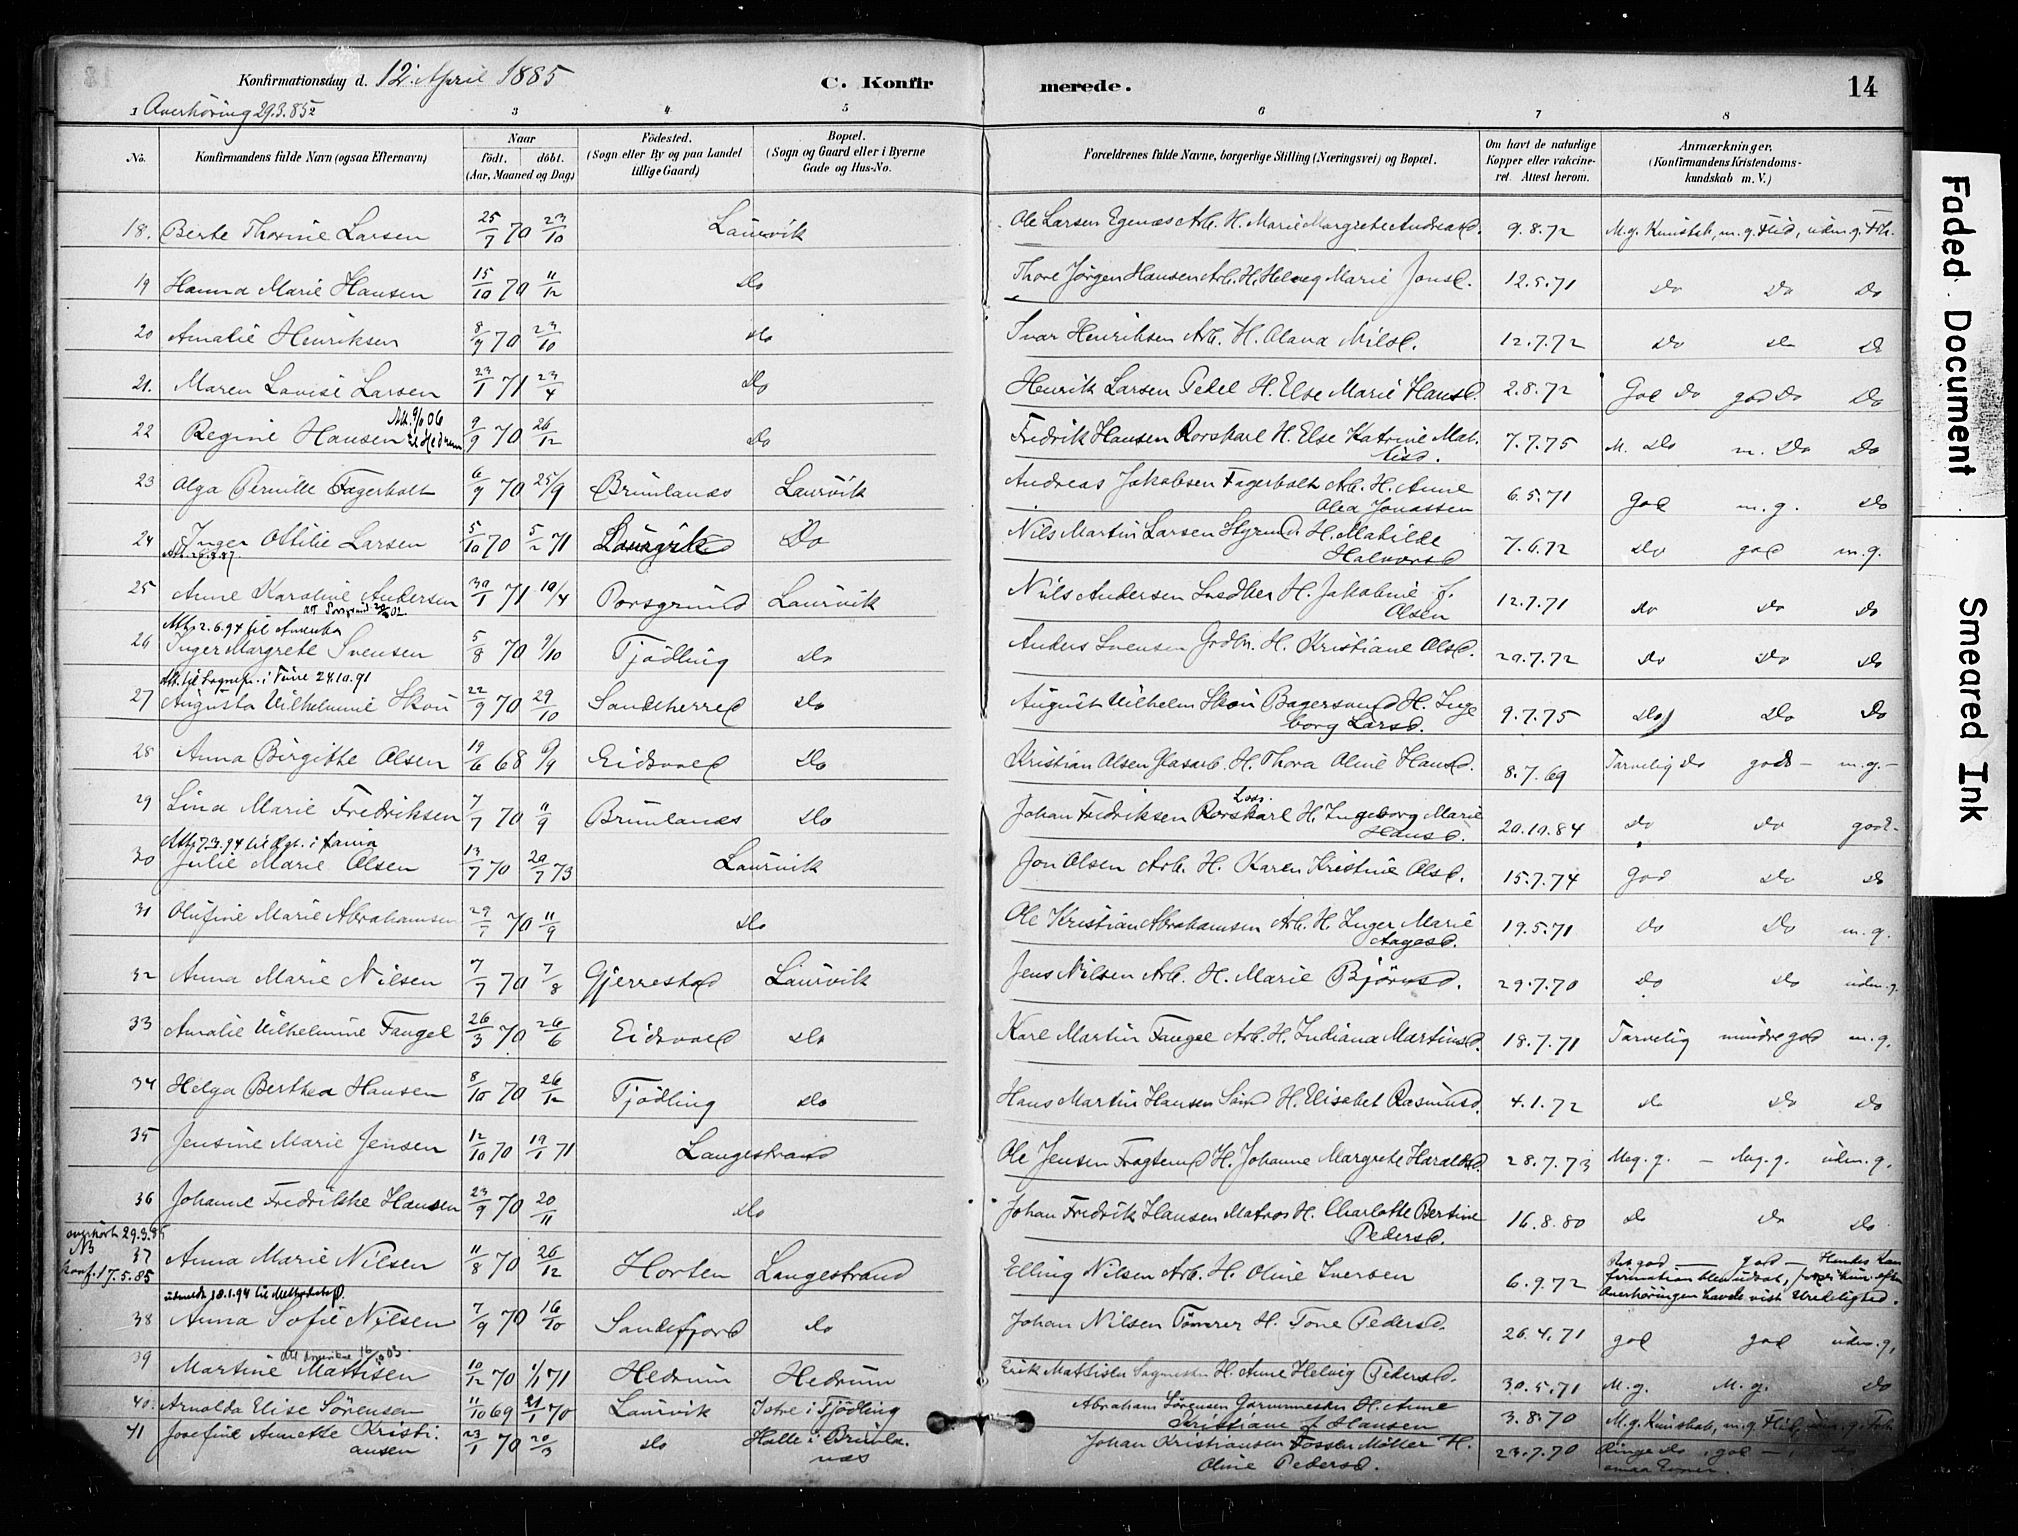 Konfirmationsdag d. 12. April 1885 C. Konfirmerede. 14
Averhöring 29.3.85
1 2 3 4 5 6 7 8
No. Konfirmandens fulde Navn (ogsaa Efternavn) Naar födt. döbt. (Aar, Maaned og Dag) Födested. (Sogn eller By og paa Landet tillige Gaard) Bopæl. (Sogn og Gaard eller i Byerne Gade og Hus-No. Forældrenes fulde Navne, borgerlige Stilling (Næringsvei) og Bopæl. Om havt de naturlige Kopper eller vaccineret. Attest herom. Anmærkninger. (Konfirmandens Kristendomskundskab m. V.)
18. Berte Thorine Larsen 25/7 70 23/10 Laurvik Ole Larsen Egenæs Arb. H. Marie Margrete Andreasd. 9.8.72 M.g. Kundskab, m.g. Flid, udm.g. Forh.
19 Hanna Marie Hansen 15/10 70 11/12 Do Thore Jørgen Hansen Arb. H. Helveg Marie Jonsd. 12.5.71 Do Do Do
20 Amalie Henriksen 8/9 70 23/10 Do Ivar Henriksen Arb. H. Olava Nilsd. 12.7.72 Do Do Do
21. Maren Lovise Larsen 23/1 71 23/4 Do Henrik Larsen Pedel H. Else Marie Hansd. 2.8.72 God Do god Do Do
Att. 9/ 06
22 Regine Hansen til Hedrum 9/9 70 26/12 Do Fredrik Hansen Rorskarl H. Else Katrine Mat- 7.7.75 M. Do m. Do Do
tisd.
23 Olga Pernille Fagerholt 6/9 70 25/9 Brunlanæs Laurvik Andreas Jakobsen Fagerholt Arb. H. Anne 6.5.71 God m.g. Do
Olea Jonassen
24 Inger Ottilie Larsen 5/10 70 5/2 71 Laurvik Do Nils Martin Larsen Styrmd. H. Matilde 7.6.72 Do god m.g.
Halvorsd.
25 Anne Karoline Andersen 30/1 71 10/4 Porsgrund Laurvik Nils Andersen H. Jakobine f. 12.7.71 Do Do Do
Olsen
Att. 2.6.94 til Amerika
26 Inger Margrete Svensen 5/8 70 9/10 Tjödling Do Anders Svensen H. Kristiane Olsd. 20.7.72 Do Do Do
24.10.91
27 Augusta Vilhelmine Skou 22/9 70 29/10 Sandeherred Do August Vilhelm Skou Bagersvend H. Inge- 9.7.75 Do Do Do
borg Larsd.
28 Anna Birgitte Olsen 19/6 68 9/9 Eidsvold Do Kristian Olsen Glasarb. H. Thora Oline Hansd. 8.7.69 Tarvelig Do god - m.g. -
29 Lina Marie Fredriksen 7/7 70 11/9 Brunlanæs Do Johan Fredriksen Rorskarl H. Ingeborg Marie 20.10.84 Do Do god -
Hansd.
30 Julie Marie Olsen 13/7 70 20/7 73 Laurvik Jon Olsen Arb. H. Karen Kristine Olsd. 15.7.74 God Do Do
31 Olufine Marie Abrahamsen 29/7 70 11/9 Do Ole Kristian Abrahamsen Arb. H. Inger Marie 19.5.71 Do Do m.g.
Aagesd.
32 Anna Marie Nilsen 7/7 70 7/8 Gjerrestad Laurvik Jens Nilsen Arb. H. Marie Björnsd. 29.7.70 Do Do udm.g.
33 Amalie Vilhelmine Fangel 26/3 70 26/6 Eidsvold Do Karl Martin Fangel Arb. H. Indiana Martinsd. 18.7.71 Tarvelig mindre god m.g.
34 Helga Berthea Hansen 8/10 70 26/12 Tjödling Do Hans Martin Hansen H. Elisabet Rasmusd. 4.1.72 Do Do Do
35 Jensine Marie Jensen 12/10 70 19/1 71 Langestrand Ole Jensen H. Johanne Margrete Haraldsd. 28.7.73 Meg. g. - Meg. g. udm. g.
36 Johanne Fredrikke Hansen 23/9 70 20/11 Do Johan Fredrik Hansen Matros H. Charlotte Bertine 16.8.80 Do Do Do
Pedersd.
overhört 29.3.85
NB
37 Anna Marie Nilsen 11/8 70 26/12 Horten Langestrand Elling Nilsen Arb. H. Oline Iversen 6.9.72 god - god - Hendes Kon-
konf. 17.5.85 firmation blev udsat, fordi hun efter
Overhöringen havde vist Uredelighed.
udmeldt 18.1.94 til
38 Anna Sofie Nilsen 7/9 70 16/10 Sandefjord Do Johan Nilsen Tömrer H. Tone Pedersd. 26.4.71 god god udm. g.
39 Martine Mattisen 10/12 70 1/1 71 Hedrum Hedrum Erik Mattisen H. Anne Helvig Pedersd. 30.5.71 M.g. M.g. Do
40. Arnolda Elise Sörensen 11/10 69 21/1 70 Laurvik Istre i Tjödling Abraham Sörensen H. Anne 3.8.70 M.g. Kundskab, m.g. Flid, udm.g. Forh.
Kristiane f. Hansen
41 Josefine Annette Kristi- 23/1 70 20/3 Do Halle i Brunla- Johan Kristiansen H. 23.7.70 Ringe Do, god -, Do
ansen næs Oline Pedersd.
Faded Document
Smeared Ink